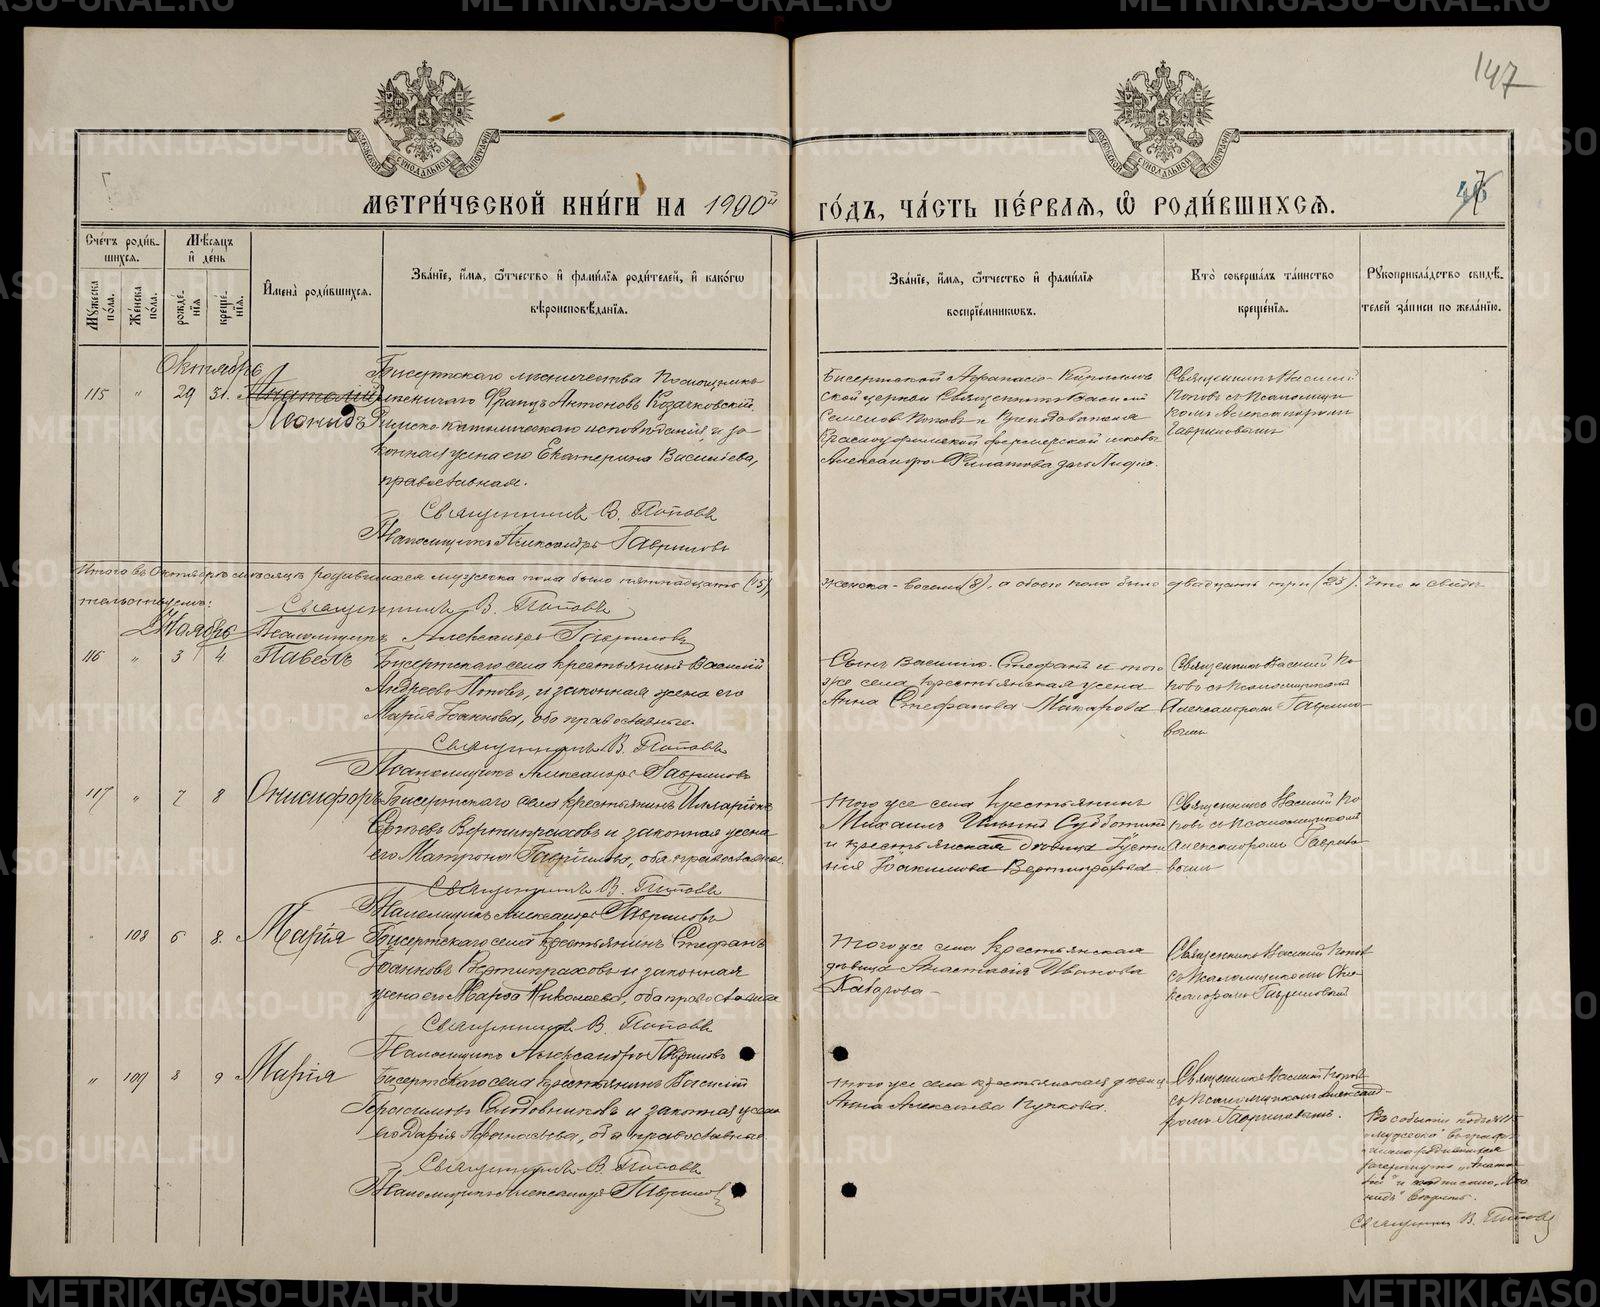 147
МЕТРИ́ЧЕСКОЙ КНИ́ГИ НА 1900й ГО́ДЪ, ЧА́СТЬ ПЕ́РВАѦ, Ѡ҆ РОДИ́ВШИХСѦ.
Сче́тъ роди́в-
шихсѧ.
Мꙋ́жеска по́ла.
Же́нска по́ла.
Мѣ́сѧцъ
и҆ де́нь
рожде́-
нїѧ
креще́-
нїѧ.
И҆мена̀ роди́вшихсѧ.
Зва́нїе, и҆́мѧ, ѻ҆́тчество и҆ фами́лїѧ роди́телей, и҆ како́гѡ
вѣроисповѣ́данїѧ.
Зва́нїе, и҆́мѧ, ѻ҆́тчество и҆ фами́лїѧ
воспрїе́мникѡвъ.
Кто̀ соверша́лъ та́инство
креще́нїѧ.
Рꙋкоприкла́дство свидѣ́-
телей за́писи по жела́нїю.
Октябрь
115 " 29 31. Анатолій
Леонидъ
Бисертскаго лѣсничества Помощникъ
Лѣсничаго Францъ Антоновъ Козачковскій,
Римско-католическаго исповѣданія, и за-
конная жена его Екатерина Васильева,
православная.
Священникъ В. Поповъ
Псаломщикъ Александръ Гавриловъ
Бисертской Афанасіо-Кирилов-
ской церкви Священникъ Василій
Семеновъ Поповъ и Преподавателя
Красноуфимской фермерской школы
Александра Филатова дочь Лидія.
Священникъ Василій
Поповъ съ Псаломщи-
комъ Александромъ
Гавриловымъ
Итого въ Октябрѣ мѣсяцѣ родившихся мужеска пола было пятнадцать (15)
женска - восемь (8), а обоего пола было двадцать три (23). Что и свидѣ-
тельствуемъ:
Священникъ В. Поповъ
Псаломщикъ Александръ Гавриловъ
Ноябрь
116 " 3 4. Павелъ
Бисертскаго села крестьянинъ Василій
Андреевъ Поповъ, и законная жена его
Марія Іоаннова, оба православные.
Священникъ В. Поповъ
Псаломщикъ Александръ Гавриловъ
Сынъ Василія Стефанъ и того
же села крестьянская жена
Анна Стефанова Макарова
Священникъ Василій По-
повъ съ Псаломщикомъ
Александромъ Гаврило-
вымъ
117 " 7 8 Онисифоръ
Бисертскаго села крестьянинъ Илларіонъ
Вертипраховъ и законная жена
его Матрона Гаврилова, оба православные.
Священникъ В. Поповъ
Псаломщикъ Александръ Гавриловъ
Того же села крестьянинъ
Михаилъ Ильинъ Субботинъ
и крестьянская дѣвица Іусти-
нія Іоакимова Вертипрахова
Священникъ Василій По-
повъ съ Псаломщикомъ
Александромъ Гаврило-
вымъ
" 108 6 8. Марія
Бисертскаго села крестьянинъ Стефанъ
Іоанновъ Вертипраховъ и законная
жена его Марѳа Николаева, оба православные
Священникъ В. Поповъ
Псаломщикъ Александръ Гавриловъ
Того же села крестьянская
дѣвица Анастасія Иванова
Священникъ Василій Поповъ
съ Псаломщикомъ Але-
ксандромъ Гавриловымъ
" 109 8 9 Марія
Бисертскаго села крестьянинъ Василій
Герасимовъ Солодовниковъ и законная жена
его Дарія Афанасьева, оба православные
Священникъ В. Поповъ
Псаломщикъ Александръ Гавриловъ
Того же села крестьянская дѣвица
Анна Алексѣева Пучкова.
Священникъ Василій Поповъ
съ Псаломщикомъ Александ-
ромъ Гавриловымъ.
мужеска въ графѣ
имена родившихся
зачеркнуто "Анато-
лій" и подписано "Лео-
нидъ" вѣрить.
Священникъ В. Поповъ
METRIKI.GASO-URAL.RU